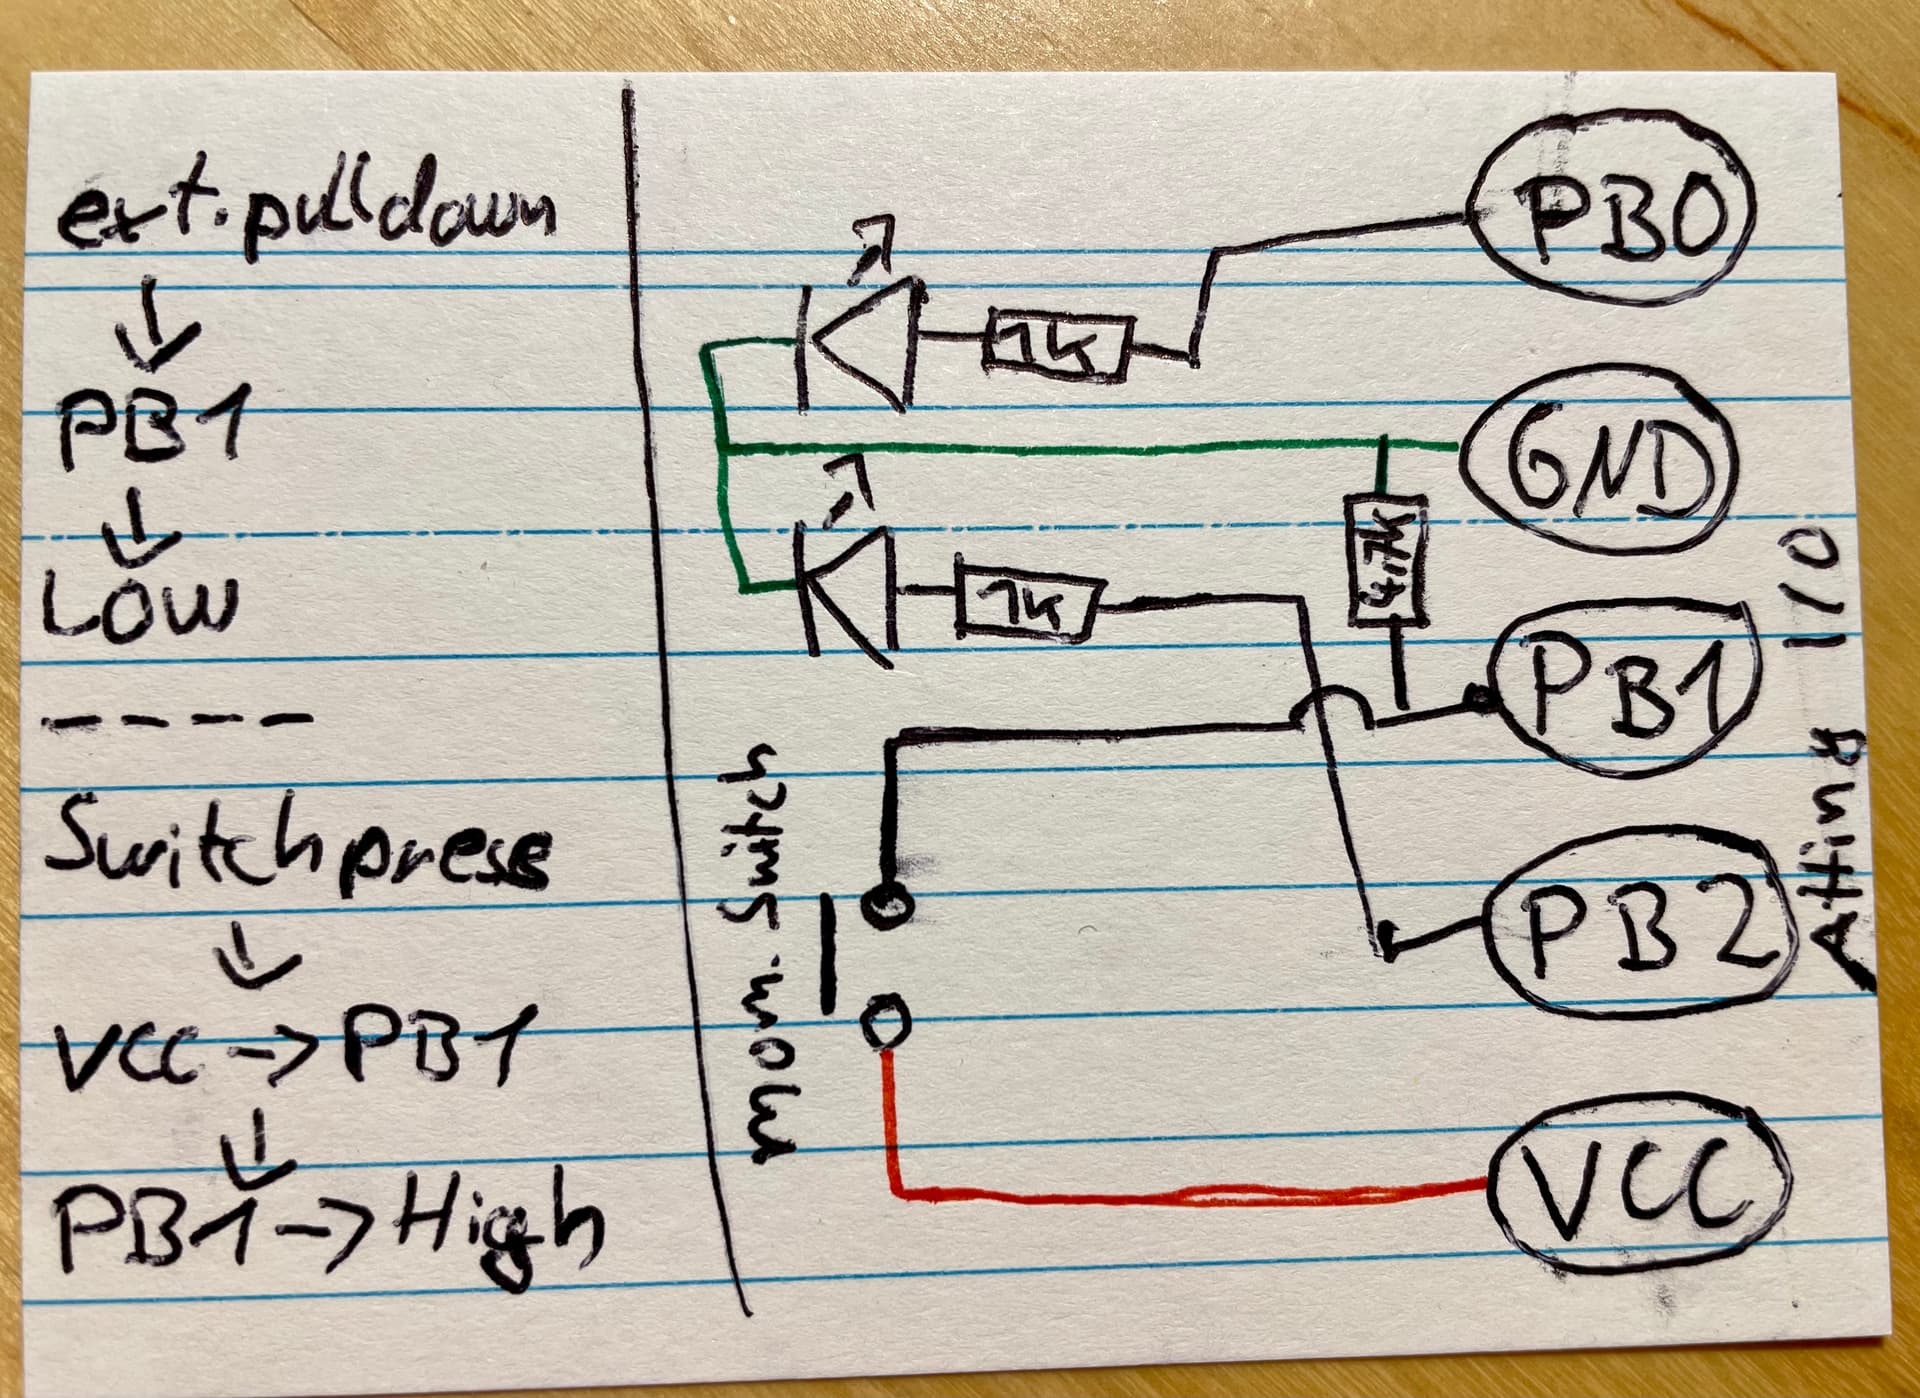 ext. pulldown
↓
PB1
↓
LOW
----
Switch press
↓
VCC -> PB1
↓
PB1 -> High
PB0
1k
GND
4.7k
1k
PB1
PB2
VCC
mom. Switch
Attiny I/O